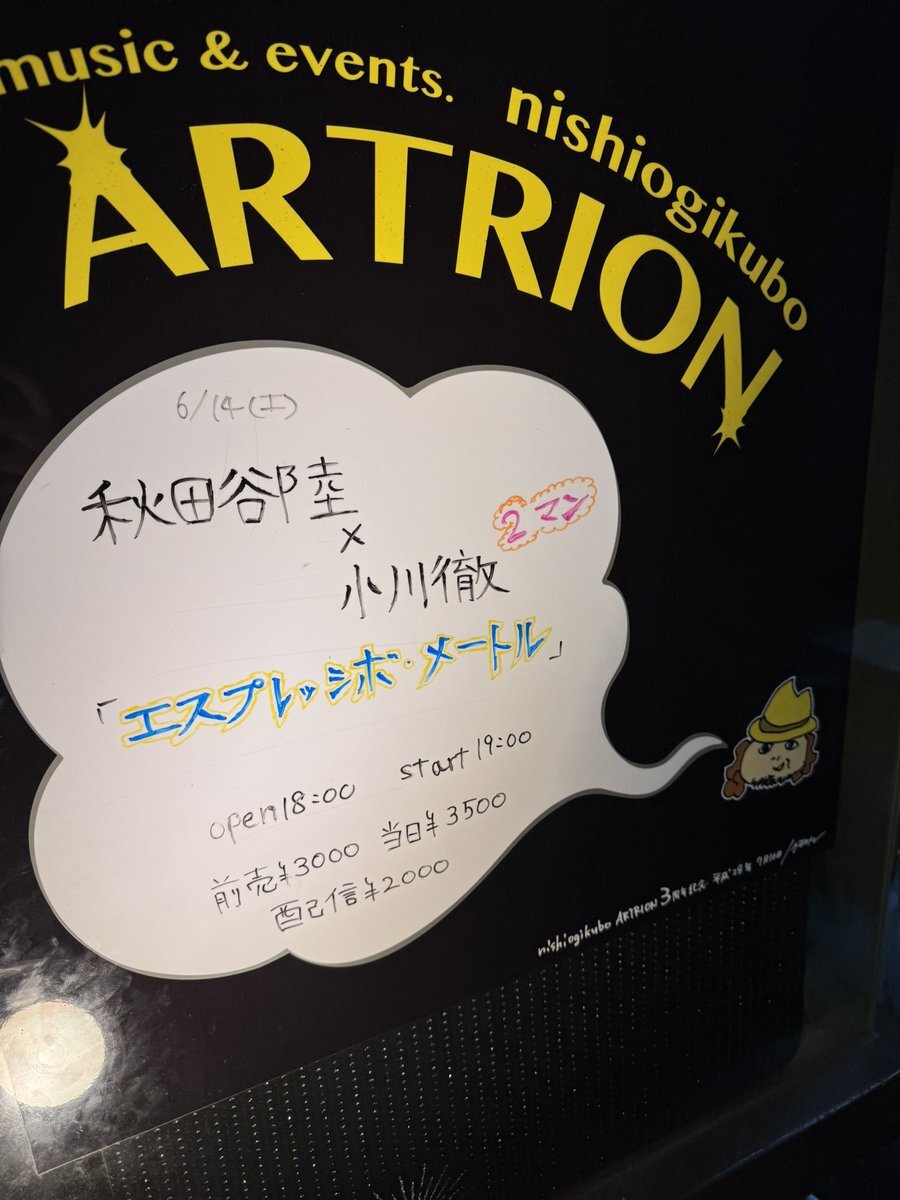 music & events. nishiogikubo
ARTRION
6/14(土)
秋田谷陸
×
小川徹
2マン
「エスプレッシボ・メートル」
open18:00 start19:00
前売¥3000 当日¥3500
配信¥2000
nishiogikubo ARTRION 3周年記念 平成28年 7月16日